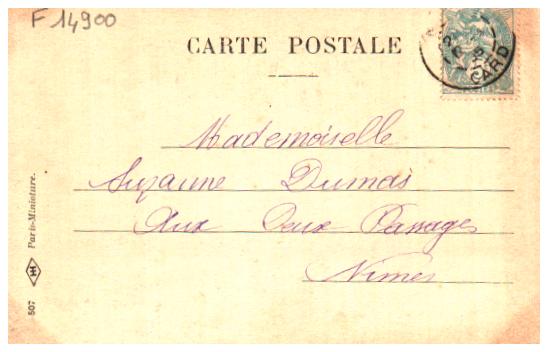 F 14900
CARTE POSTALE
GARD
Mademoiselle
Suzanne Dumas
Aux Deux Passages
Nîmes
507 Paris-Miniature.